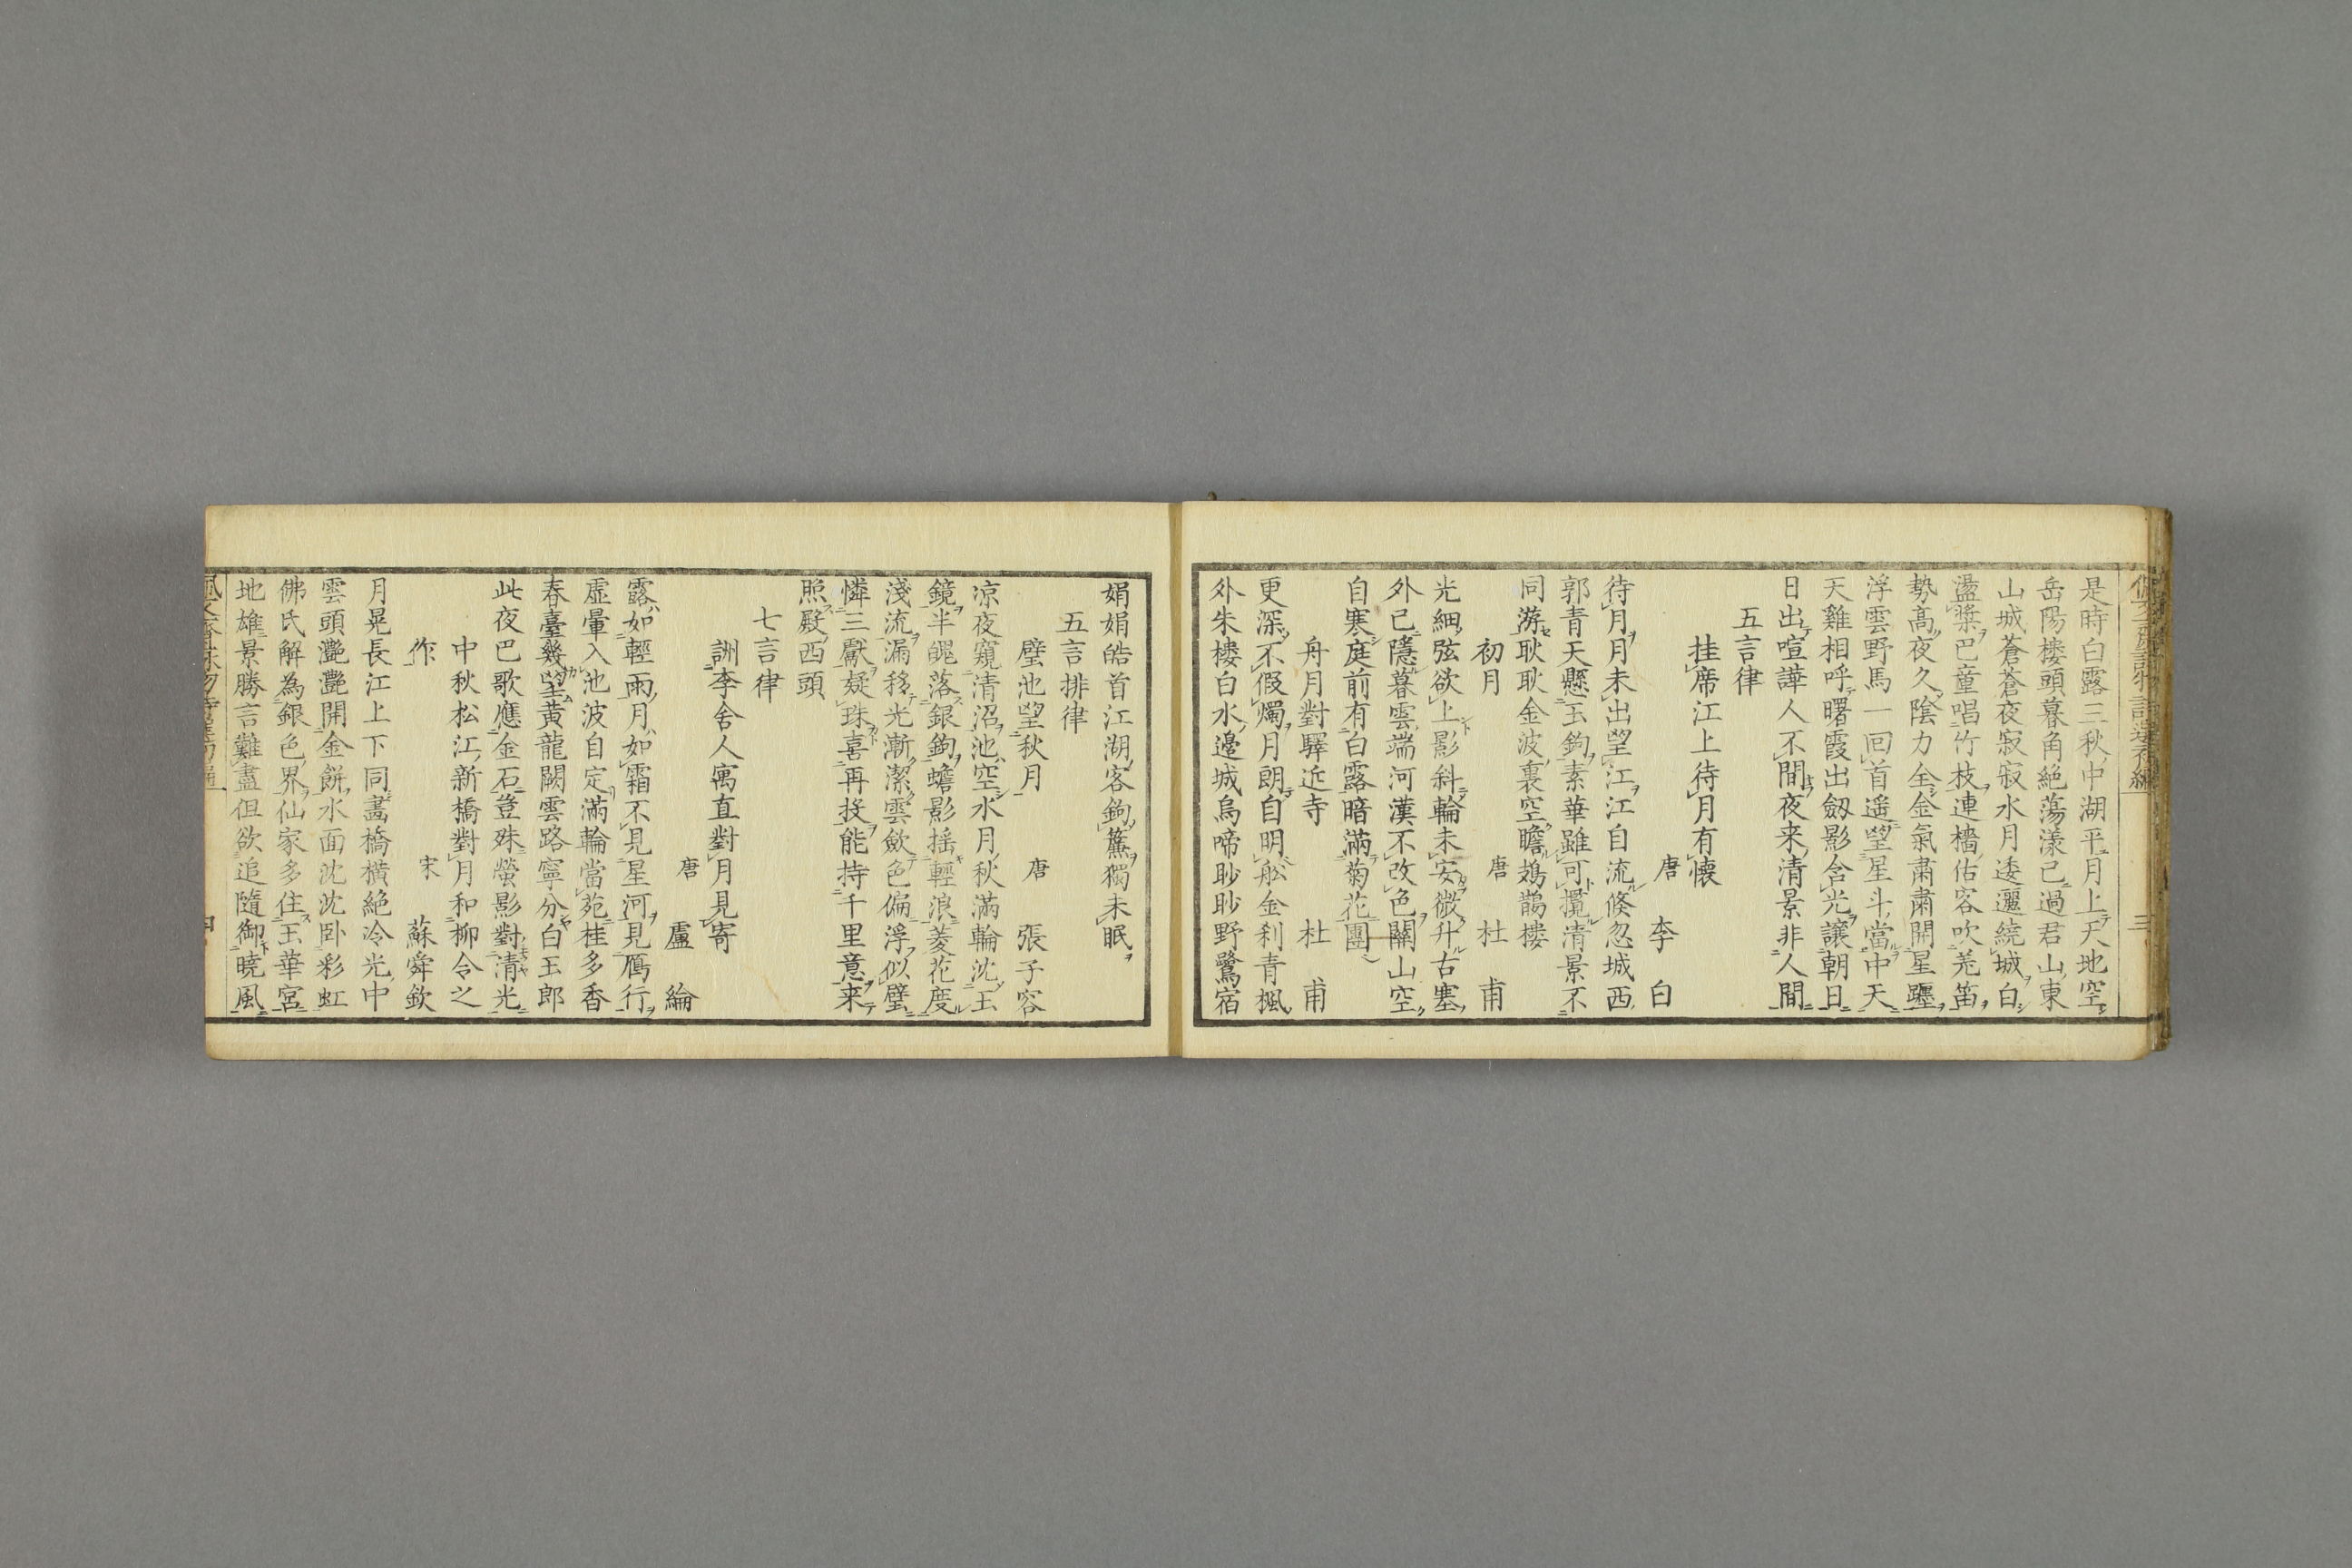 是時白露三秋中湖平月上天地空
岳陽樓頭暮角絶蕩漾已過君山東
山城蒼蒼夜寂寂水月逶邐繞城白
盪槳巴童唱竹枝連檣估客吹羌笛
勢高夜久陰力全金氣肅肅開星躔
浮雲野馬一回首遥望星斗當中天
天雞相呼曙霞出劔影含光讓朝日
日出喧譁人不閒夜来清景非人間
五言律
挂席江上待月有懐
唐 李白
待月月未出望江江自流倐忽城西
郭青天懸玉鉤素華雖可攬清景不
同游耿耿金波裏空瞻鳷鵲樓
初月 唐 杜甫
光細弦欲上影斜輪未安微升古塞
外已隱暮雲端河漢不改色關山空
自寒庭前有白露暗滿菊花團
舟月對驛近寺 杜甫
更深不假燭月朗自明舩金刹青楓
外朱樓白水邉城烏啼眇眇野鷺宿
娟娟皓首江湖客鉤簾獨未眠
五言排律
璧池望秋月 唐 張子容
凉夜窺清沼池空水月秋滿輪沈玉
鏡半魄落銀鉤蟾影摇輕浪菱花度
淺流漏移光漸潔雲歛色偏浮似璧
憐三獻疑珠喜再投能持千里意来
照殿西頭
七言律
詶李舍人寓直對月見寄
唐 盧綸
露如輕雨月如霜不見星河見鴈行
虚暈入池波自定滿輪當苑桂多香
春臺幾望黄龍闕雲路寧分白玉郎
此夜巴歌應金石豈殊螢影對清光
中秋松江新橋對月和柳令之
作 宋 蘇舜欽
月晃長江上下同畵橋横絶冷光中
雲頭灧灧開金餅水面沈沈卧彩虹
佛氏解為銀色界仙家多住玉華宫
地雄景勝言難盡但欲追隨御曉風